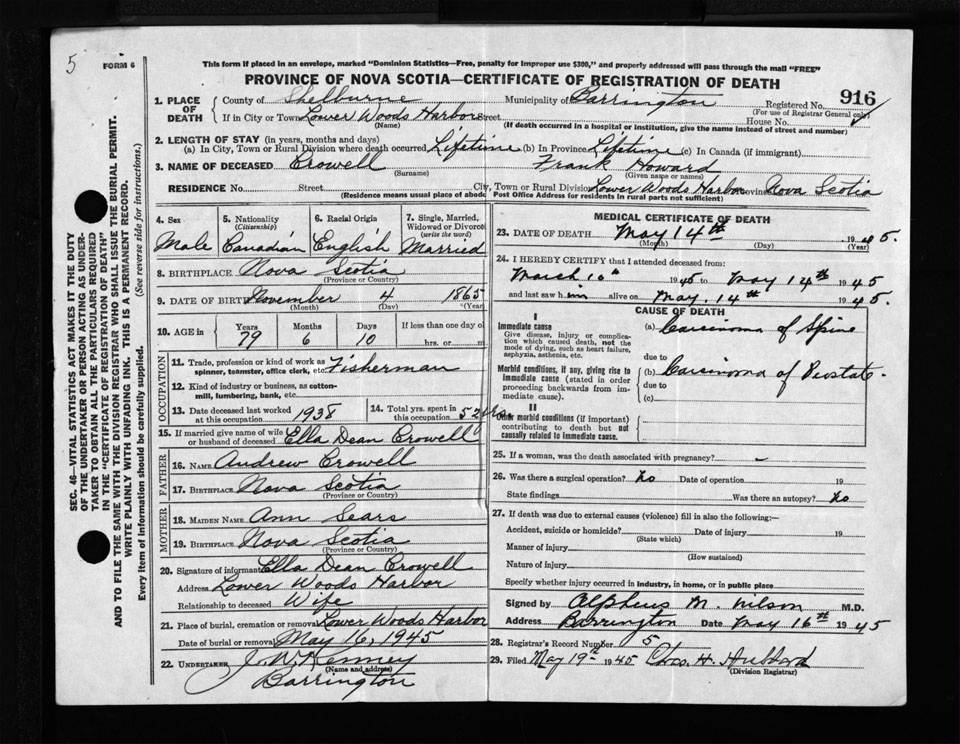 5
FORM 6
This form if placed in an envelope, marked "Dominion Statistics—Free, penalty for improper use $300," and properly addressed will pass through the mail "FREE"
PROVINCE OF NOVA SCOTIA—CERTIFICATE OF REGISTRATION OF DEATH
SEC. 46—VITAL STATISTICS ACT MAKES IT THE DUTY
OF THE UNDERTAKER OR PERSON ACTING AS UNDER-
TAKER TO OBTAIN ALL THE PARTICULARS REQUIRED
IN THE "CERTIFICATE OF REGISTRATION OF DEATH"
AND TO FILE THE SAME WITH THE DIVISION REGISTRAR WHO SHALL ISSUE THE BURIAL PERMIT.
WRITE PLAINLY WITH UNFADING INK. THIS IS A PERMANENT RECORD.
Every item of information should be carefully supplied. (See reverse side for instructions.)
1. PLACE OF DEATH
County of Shelburne Municipality of Barrington Registered No. 916
(For use of Registrar General only)
If in City or Town Lower Woods Harbor Street House No.
(Name) (If death occurred in a hospital or institution, give the name instead of street and number)
2. LENGTH OF STAY (in years, months and days)
(a) In City, Town or Rural Division where death occurred Lifetime (b) In Province Lifetime (c) In Canada (if immigrant)
3. NAME OF DECEASED Crowell Frank Howard
(Surname) (Given name or names)
RESIDENCE No. Street City, Town or Rural Division Lower Woods Harbor Province Nova Scotia
(Residence means usual place of abode. Post Office Address for residents in rural parts not sufficient)
4. Sex
Male
5. Nationality
(Citizenship)
Canadian
6. Racial Origin
English
7. Single, Married, Widowed or Divorced
(write the word)
Married
8. BIRTHPLACE Nova Scotia
(Province or Country)
9. DATE OF BIRTH November 4 1865
(Month) (Day) (Year)
10. AGE in Years Months Days If less than one day old
79 6 10 hrs. or m.
OCCUPATION
11. Trade, profession or kind of work as Fisherman
spinner, teamster, office clerk, etc.
12. Kind of industry or business, as cotton-
mill, lumbering, bank, etc.
13. Date deceased last worked
at this occupation 1938
14. Total yrs. spent in
this occupation 52
15. If married give name of wife
or husband of deceased Ella Dean Crowell
FATHER
16. NAME Andrew Crowell
17. BIRTHPLACE Nova Scotia
(Province or Country)
MOTHER
18. MAIDEN NAME Ann Sears
19. BIRTHPLACE Nova Scotia
(Province or Country)
20. Signature of informant Ella Dean Crowell
Address Lower Woods Harbor
Relationship to deceased Wife
21. Place of burial, cremation or removal Lower Woods Harbor
Date of burial or removal May 16, 1945
22. UNDERTAKER J. W. Kenney
(Name and address)
Barrington
MEDICAL CERTIFICATE OF DEATH
23. DATE OF DEATH May 14th 1945.
(Month) (Day) (Year)
24. I HEREBY CERTIFY that I attended deceased from:
March 10th 1945 to May 14th 1945
and last saw him alive on May. 14th 1945.
CAUSE OF DEATH
I
Immediate cause
Give disease, injury or complica-
tion which caused death, not the
mode of dying, such as heart failure,
asphyxia, asthenia, etc.
(a) Carcinoma of Spine
due to
Morbid conditions, if any, giving rise to
immediate cause (stated in order
proceeding backwards from im-
mediate cause).
(b) Carcinoma of Prostate.
due to
(c)
II
Other morbid conditions (if important)
contributing to death but not
causally related to immediate cause.
25. If a woman, was the death associated with pregnancy? –
26. Was there a surgical operation? no Date of operation 19
State findings Was there an autopsy? no
27. If death was due to external causes (violence) fill in also the following:—
Accident, suicide or homicide? Date of injury 19
(State which)
Manner of injury
(How sustained)
Nature of injury
Specify whether injury occurred in industry, in home, or in public place
Signed by Alpheus M. Wilson M.D.
Address Barrington Date May 16th 1945
28. Registrar's Record Number 5
29. Filed May 19th 1945 Chas. H. Hubbard
(Division Registrar)